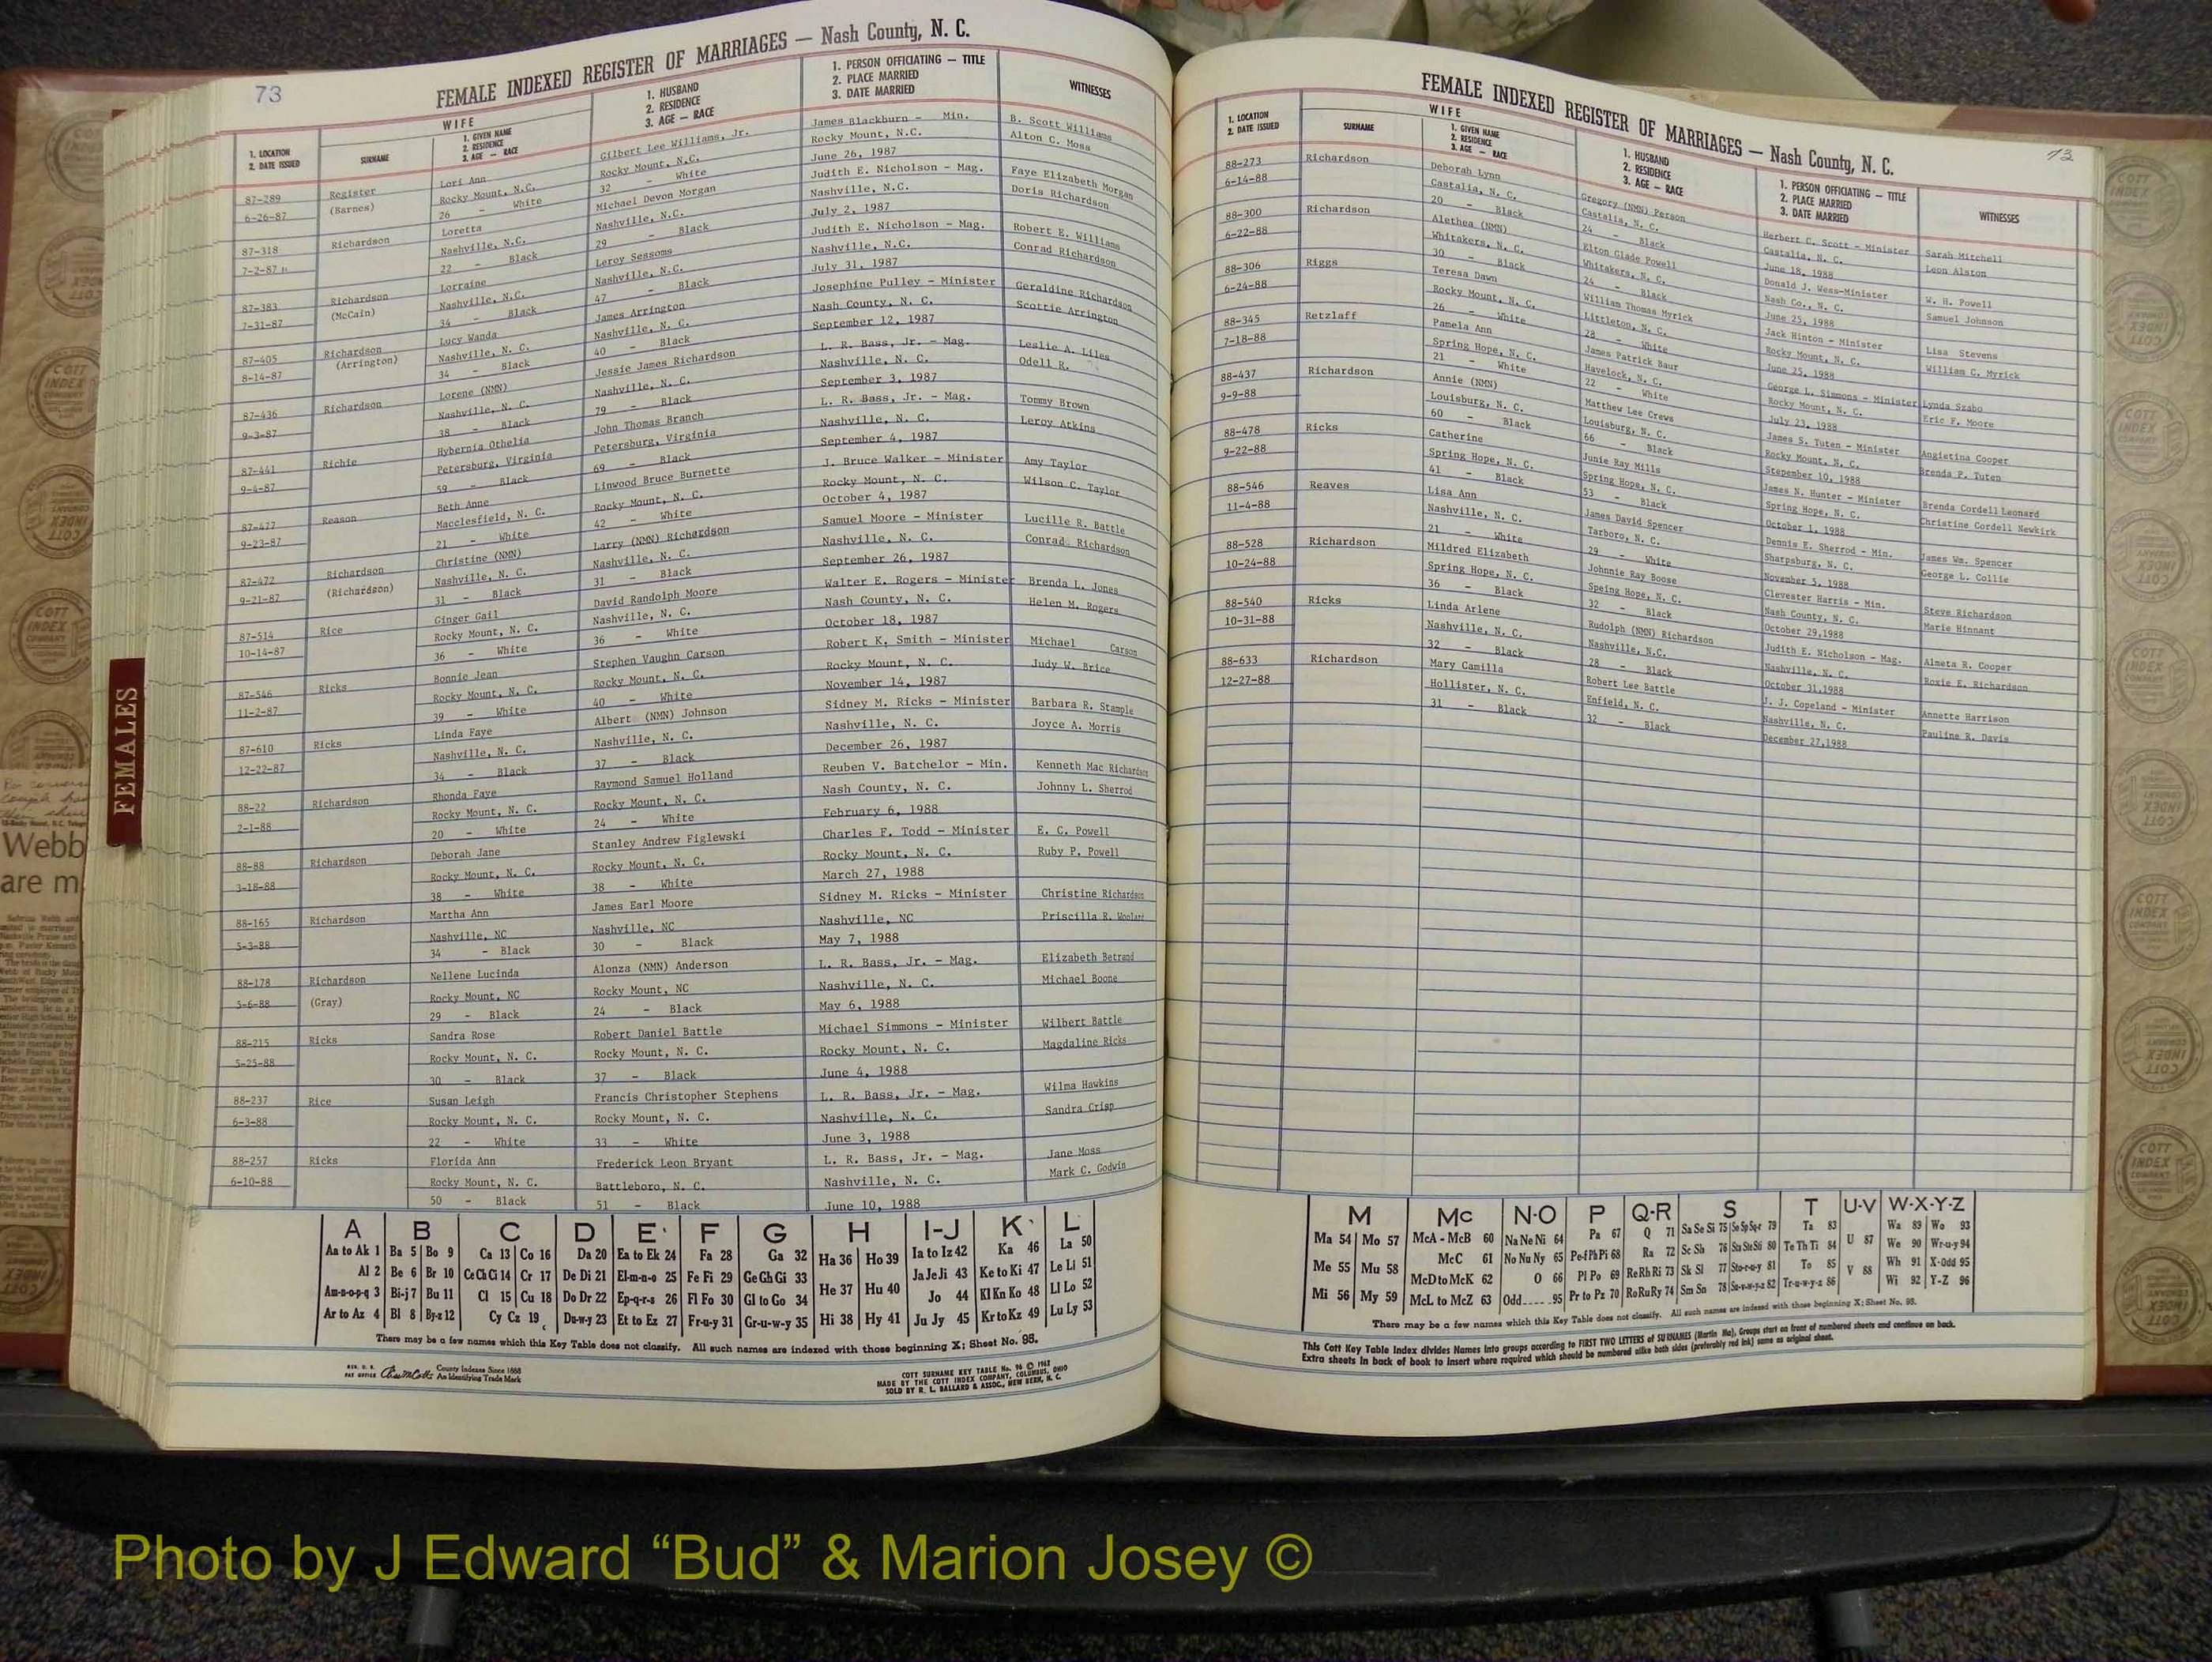 73
FEMALE INDEXED REGISTER OF MARRIAGES — Nash County, N. C.
1. LOCATION
2. DATE ISSUED
SURNAME
WIFE
1. GIVEN NAME
2. RESIDENCE
3. AGE — RACE
1. HUSBAND
2. RESIDENCE
3. AGE — RACE
1. PERSON OFFICIATING — TITLE
2. PLACE MARRIED
3. DATE MARRIED
WITNESSES
87-289 Register Lori Ann Gilbert Lee Williams, Jr. James Blackburn - Min. B. Scott Williams
6-26-87 (Barnes) Rocky Mount, N.C. Rocky Mount, N.C. Rocky Mount, N.C. Alton C. Moss
26 - White 32 - White June 26, 1987
87-318 Richardson Loretta Michael Devon Morgan Judith E. Nicholson - Mag. Faye Elizabeth Morgan
7-2-87 Nashville, N.C. Nashville, N.C. Nashville, N.C. Doris Richardson
22 - Black 29 - Black July 2, 1987
87-383 Richardson Lorraine Leroy Sessoms Judith E. Nicholson - Mag. Robert E. Williams
7-31-87 (McCain) Nashville, N.C. Nashville, N.C. Nashville, N.C. Conrad Richardson
34 - Black 47 - Black July 31, 1987
87-405 Richardson Lucy Wanda James Arrington Josephine Pulley - Minister Geraldine Richardson
8-14-87 (Arrington) Nashville, N. C. Nashville, N. C. Nash County, N. C. Scottie Arrington
34 - Black 40 - Black September 12, 1987
87-436 Richardson Lorene (NMN) Jessie James Richardson L. R. Bass, Jr. - Mag. Leslie A. Liles
9-3-87 Nashville, N. C. Nashville, N. C. Nashville, N. C. Odell R.
38 - Black 79 - Black September 3, 1987
87-441 Richie Hybernia Othelia John Thomas Branch L. R. Bass, Jr. - Mag. Tommy Brown
9-4-87 Petersburg, Virginia Petersburg, Virginia Nashville, N. C. Leroy Atkins
59 - Black 69 - Black September 4, 1987
87-477 Reason Beth Anne Linwood Bruce Burnette J. Bruce Walker - Minister Amy Taylor
9-23-87 Macclesfield, N. C. Rocky Mount, N. C. Rocky Mount, N. C. Wilson C. Taylor
21 - White 42 - White October 4, 1987
87-472 Richardson Christine (NMN) Larry (NMN) Richardson Samuel Moore - Minister Lucille R. Battle
9-21-87 (Richardson) Nashville, N. C. Nashville, N. C. Nashville, N. C. Conrad Richardson
31 - Black 31 - Black September 26, 1987
87-514 Rice Ginger Gail David Randolph Moore Walter E. Rogers - Minister Brenda L. Jones
10-14-87 Rocky Mount, N. C. Nashville, N. C. Nash County, N. C. Helen M. Rogers
36 - White 36 - White October 18, 1987
87-546 Ricks Bonnie Jean Stephen Vaughn Carson Robert K. Smith - Minister Michael Carson
11-2-87 Rocky Mount, N. C. Rocky Mount, N. C. Rocky Mount, N. C. Judy W. Brice
39 - White 40 - White November 14, 1987
87-610 Ricks Linda Faye Albert (NMN) Johnson Sidney M. Ricks - Minister Barbara R. Stample
12-22-87 Nashville, N. C. Nashville, N. C. Nashville, N. C. Joyce A. Morris
34 - Black 37 - Black December 26, 1987
88-22 Richardson Rhonda Faye Raymond Samuel Holland Reuben V. Batchelor - Min. Kenneth Mac Richardson
2-1-88 Rocky Mount, N. C. Rocky Mount, N. C. Nash County, N. C. Johnny L. Sherrod
20 - White 24 - White February 6, 1988
88-88 Richardson Deborah Jane Stanley Andrew Figlewski Charles F. Todd - Minister E. C. Powell
3-18-88 Rocky Mount, N. C. Rocky Mount, N. C. Rocky Mount, N. C. Ruby P. Powell
38 - White 38 - White March 27, 1988
88-165 Richardson Martha Ann James Earl Moore Sidney M. Ricks - Minister Christine Richardson
5-3-88 Nashville, NC Nashville, NC Nashville, NC Priscilla R. Woolard
34 - Black 30 - Black May 7, 1988
88-178 Richardson Nellene Lucinda Alonza (NMN) Anderson L. R. Bass, Jr. - Mag. Elizabeth Betrand
5-6-88 (Gray) Rocky Mount, NC Rocky Mount, NC Nashville, N. C. Michael Boone
29 - Black 24 - Black May 6, 1988
88-215 Ricks Sandra Rose Robert Daniel Battle Michael Simmons - Minister Wilbert Battle
5-25-88 Rocky Mount, N. C. Rocky Mount, N. C. Rocky Mount, N. C. Magdaline Ricks
30 - Black 37 - Black June 4, 1988
88-237 Rice Susan Leigh Francis Christopher Stephens L. R. Bass, Jr. - Mag. Wilma Hawkins
6-3-88 Rocky Mount, N. C. Rocky Mount, N. C. Nashville, N. C. Sandra Crisp
22 - White 33 - White June 3, 1988
88-257 Ricks Florida Ann Frederick Leon Bryant L. R. Bass, Jr. - Mag. Jane Moss
6-10-88 Rocky Mount, N. C. Battleboro, N. C. Nashville, N. C. Mark C. Godwin
50 - Black 51 - Black June 10, 1988
A B C D E F G H I-J K L
Aa to Ak 1 Ba 5 Bo 9 Ca 13 Co 16 Da 20 Ea to Ek 24 Fa 28 Ga 32 Ha 36 Ho 39 Ia to Iz 42 Ka 46 La 50
Al 2 Be 6 Br 10 Ce Ch Ci 14 Cr 17 De Di 21 El-m-n-o 25 Fe Fi 29 Ge Gh Gi 33 He 37 Hu 40 Ja Je Ji 43 Ke to Ki 47 Le Li 51
Am-n-o-p-q 3 Bi-j 7 Bu 11 Cl 15 Cu 18 Do Dr 22 Ep-q-r-s 26 Fl Fo 30 Gl to Go 34 Jo 44 Kl Kn Ko 48 Ll Lo 52
Ar to Az 4 Bl 8 By-z 12 Cy Cz 19 Du-w-y 23 Et to Ez 27 Fr-u-y 31 Gr-u-w-y 35 Hi 38 Hy 41 Ju Jy 45 Kr to Kz 49 Lu Ly 53
There may be a few names which this Key Table does not classify. All such names are indexed with those beginning X; Sheet No. 95.
County Indexes Since 1888
An Identifying Trade Mark
COTT SURNAME KEY TABLE No. 96 © 1962
MADE BY THE COTT INDEX COMPANY, COLUMBUS, OHIO
SOLD BY R. L. BALLARD & ASSOC., NEW BERN, N. C.
FEMALES
Webb
are m
FEMALE INDEXED REGISTER OF MARRIAGES — Nash County, N. C.
73
1. LOCATION
2. DATE ISSUED
SURNAME
WIFE
1. GIVEN NAME
2. RESIDENCE
3. AGE — RACE
1. HUSBAND
2. RESIDENCE
3. AGE — RACE
1. PERSON OFFICIATING — TITLE
2. PLACE MARRIED
3. DATE MARRIED
WITNESSES
88-273 Richardson Deborah Lynn Gregory (NMN) Person Herbert C. Scott - Minister Sarah Mitchell
6-14-88 Castalia, N. C. Castalia, N. C. Castalia, N. C. Leon Alston
20 - Black 24 - Black June 18, 1988
88-300 Richardson Alethea (NMN) Elton Glade Powell Donald J. Wess-Minister W. H. Powell
6-22-88 Whitakers, N. C. Whitakers, N. C. Nash Co., N. C. Samuel Johnson
30 - Black 24 - Black June 25, 1988
88-306 Riggs Teresa Dawn William Thomas Myrick Jack Hinton - Minister Lisa Stevens
6-24-88 Rocky Mount, N. C. Littleton, N. C. Rocky Mount, N. C. William G. Myrick
26 - White 28 - White June 25, 1988
88-345 Retzlaff Pamela Ann James Patrick Baur George L. Simmons - Minister Lynda Szabo
7-18-88 Spring Hope, N. C. Havelock, N. C. Rocky Mount, N. C. Eric F. Moore
21 - White 22 - White July 23, 1988
88-437 Richardson Annie (NMN) Matthew Lee Crews James S. Tuten - Minister Angietina Cooper
9-9-88 Louisburg, N. C. Louisburg, N. C. Rocky Mount, N. C. Brenda P. Tuten
60 - Black 66 - Black Stepember 10, 1988
88-478 Ricks Catherine Junie Ray Mills James N. Hunter - Minister Brenda Cordell Leonard
9-22-88 Spring Hope, N. C. Spring Hope, N. C. Spring Hope, N. C. Christine Cordell Newkirk
41 - Black 53 - Black October 1, 1988
88-546 Reaves Lisa Ann James David Spencer Dennis E. Sherrod - Min. James Wm. Spencer
11-4-88 Nashville, N. C. Tarboro, N. C. Sharpsburg, N. C. George L. Collie
21 - White 29 - White November 5, 1988
88-528 Richardson Mildred Elizabeth Johnnie Ray Boose Clevester Harris - Min. Steve Richardson
10-24-88 Spring Hope, N. C. Speing Hope, N. C. Nash County, N. C. Marie Hinnant
36 - Black 32 - Black October 29,1988
88-540 Ricks Linda Arlene Rudolph (NMN) Richardson Judith E. Nicholson - Mag. Almeta R. Cooper
10-31-88 Nashville, N. C. Nashville, N.C. Nashville, N. C. Roxie E. Richardson
32 - Black 28 - Black October 31,1988
88-633 Richardson Mary Camilla Robert Lee Battle J. J. Copeland - Minister Annette Harrison
12-27-88 Hollister, N. C. Enfield, N. C. Nashville, N. C. Pauline R. Davis
31 - Black 32 - Black December 27,1988
M Mc N-O P Q-R S T U-V W-X-Y-Z
Ma 54 Mo 57 McA - McB 60 Na Ne Ni 64 Pa 67 Q 71 Sa Se Si 75 So Sp Sq-r 79 Ta 83 U 87 Wa 89 Wo 93
Me 55 Mu 58 McC 61 No Nu Ny 65 Pe-f Ph Pi 68 Ra 72 Sc Sh 76 Sta Ste Sti 80 Te Th Ti 84 We 90 Wr-u-y 94
McD to McK 62 O 66 Pl Po 69 Re Rh Ri 73 Sk Sl 77 Sto-r-u-y 81 To 85 V 88 Wh 91 X-Odd 95
Mi 56 My 59 McL to McZ 63 Odd 95 Pr to Pz 70 Ro Ru Ry 74 Sm Sn 78 Su-v-w-y-z 82 Tr-u-w-y-z 86 Wi 92 Y-Z 96
There may be a few names which this Key Table does not classify. All such names are indexed with those beginning X; Sheet No. 95.
This Cott Key Table Index divides Names into groups according to FIRST TWO LETTERS of SURNAMES (Martin Ma), Groups start on front of numbered sheets and continue on back.
Extra sheets in back of book to insert where required which should be numbered alike both sides (preferably red ink) same as original sheet.
COTT
INDEX
COMPANY
Photo by J Edward “Bud” & Marion Josey ©